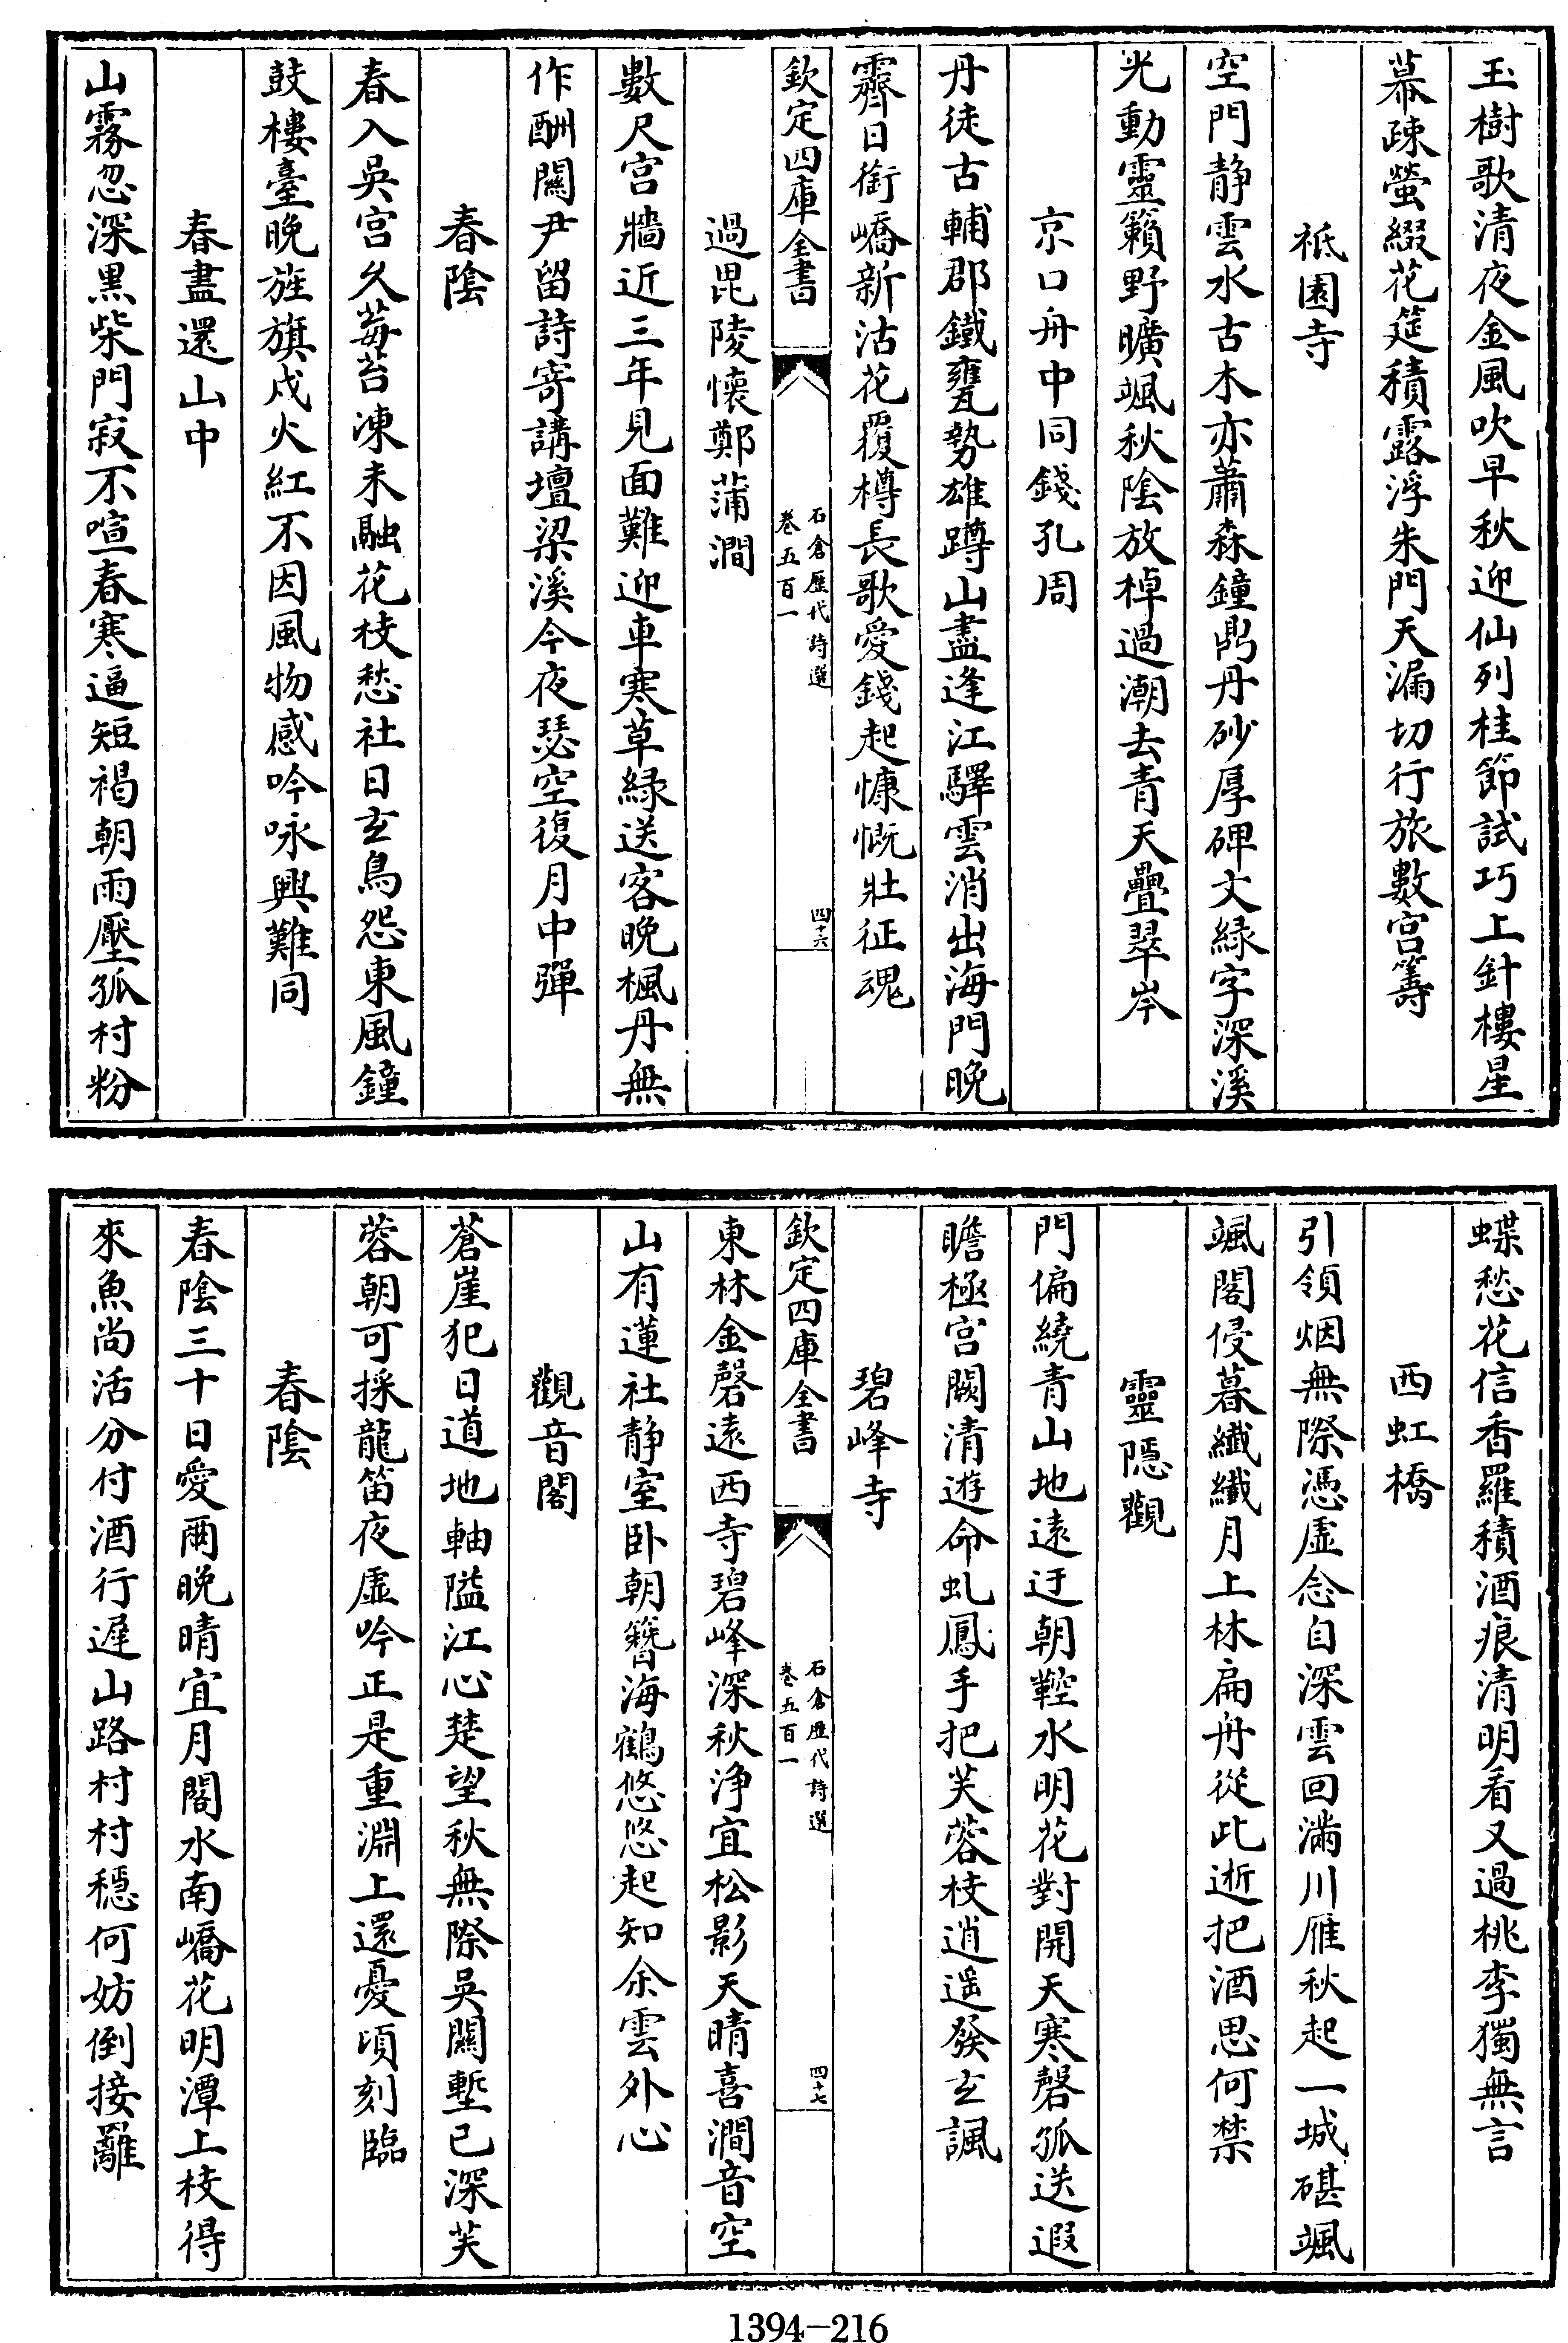 玉樹歌清夜金風吹早秋迎仙列桂節試巧上針樓星
幕疎螢綴花筵積露浮朱門天漏切行旅數宫籌
祗園寺
空門静雲水古木亦蕭森鐘鼎丹砂厚碑文緑字深溪
光動靈籟野曠颯秋陰放棹過潮去青天疊翠岑
京口舟中同錢孔周
丹徒古輔郡鐵甕勢雄蹲山盡逢江驛雲消出海門晚
霽日銜嶠新沽花覆樽長歌愛錢起慷慨壯征魂
欽定四庫全書
石倉歷代詩選
卷五百一
四十六
過毘陵懷鄭蒲澗
數尺宫牆近三年見面難迎車寒草緑送客晚楓丹無
作酬關尹留詩寄講壇梁溪今夜瑟空復月中彈
春陰
春入吳宫久莓苔凍未融花枝愁社日玄鳥怨東風鐘
鼓樓臺晚旌旗戍火紅不因風物感吟咏興難同
春盡還山中
山霧忽深黒柴門寂不喧春寒逼短褐朝雨壓孤村粉
蝶愁花信香羅積酒痕清明看又過桃李獨無言
西虹橋
引領烟無際憑虚念自深雲回滿川雁秋起一城碪颯
颯閣侵暮纖纖月上林扁舟從此逝把酒思何禁
靈隱觀
門偏繞青山地遠迂朝鞚水明花對開天寒磬孤送遐
瞻極宫闕清遊命虬鳳手把芙蓉枝逍遥發玄諷
碧峰寺
欽定四庫全書
石倉歷代詩選
卷五百一
四十七
東林金磬遠西寺碧峰深秋浄宜松影天晴喜澗音空
山有蓮社静室卧朝簪海鶴悠悠起知余雲外心
觀音閣
蒼崖犯日道地軸隘江心楚望秋無際吳關塹已深芙
蓉朝可採龍笛夜虚吟正是重淵上還憂頃刻臨
春陰
春陰三十日愛爾晚晴宜月閣水南嶠花明潭上枝得
來魚尚活分付酒行遲山路村村穩何妨倒接䍦
1394-216